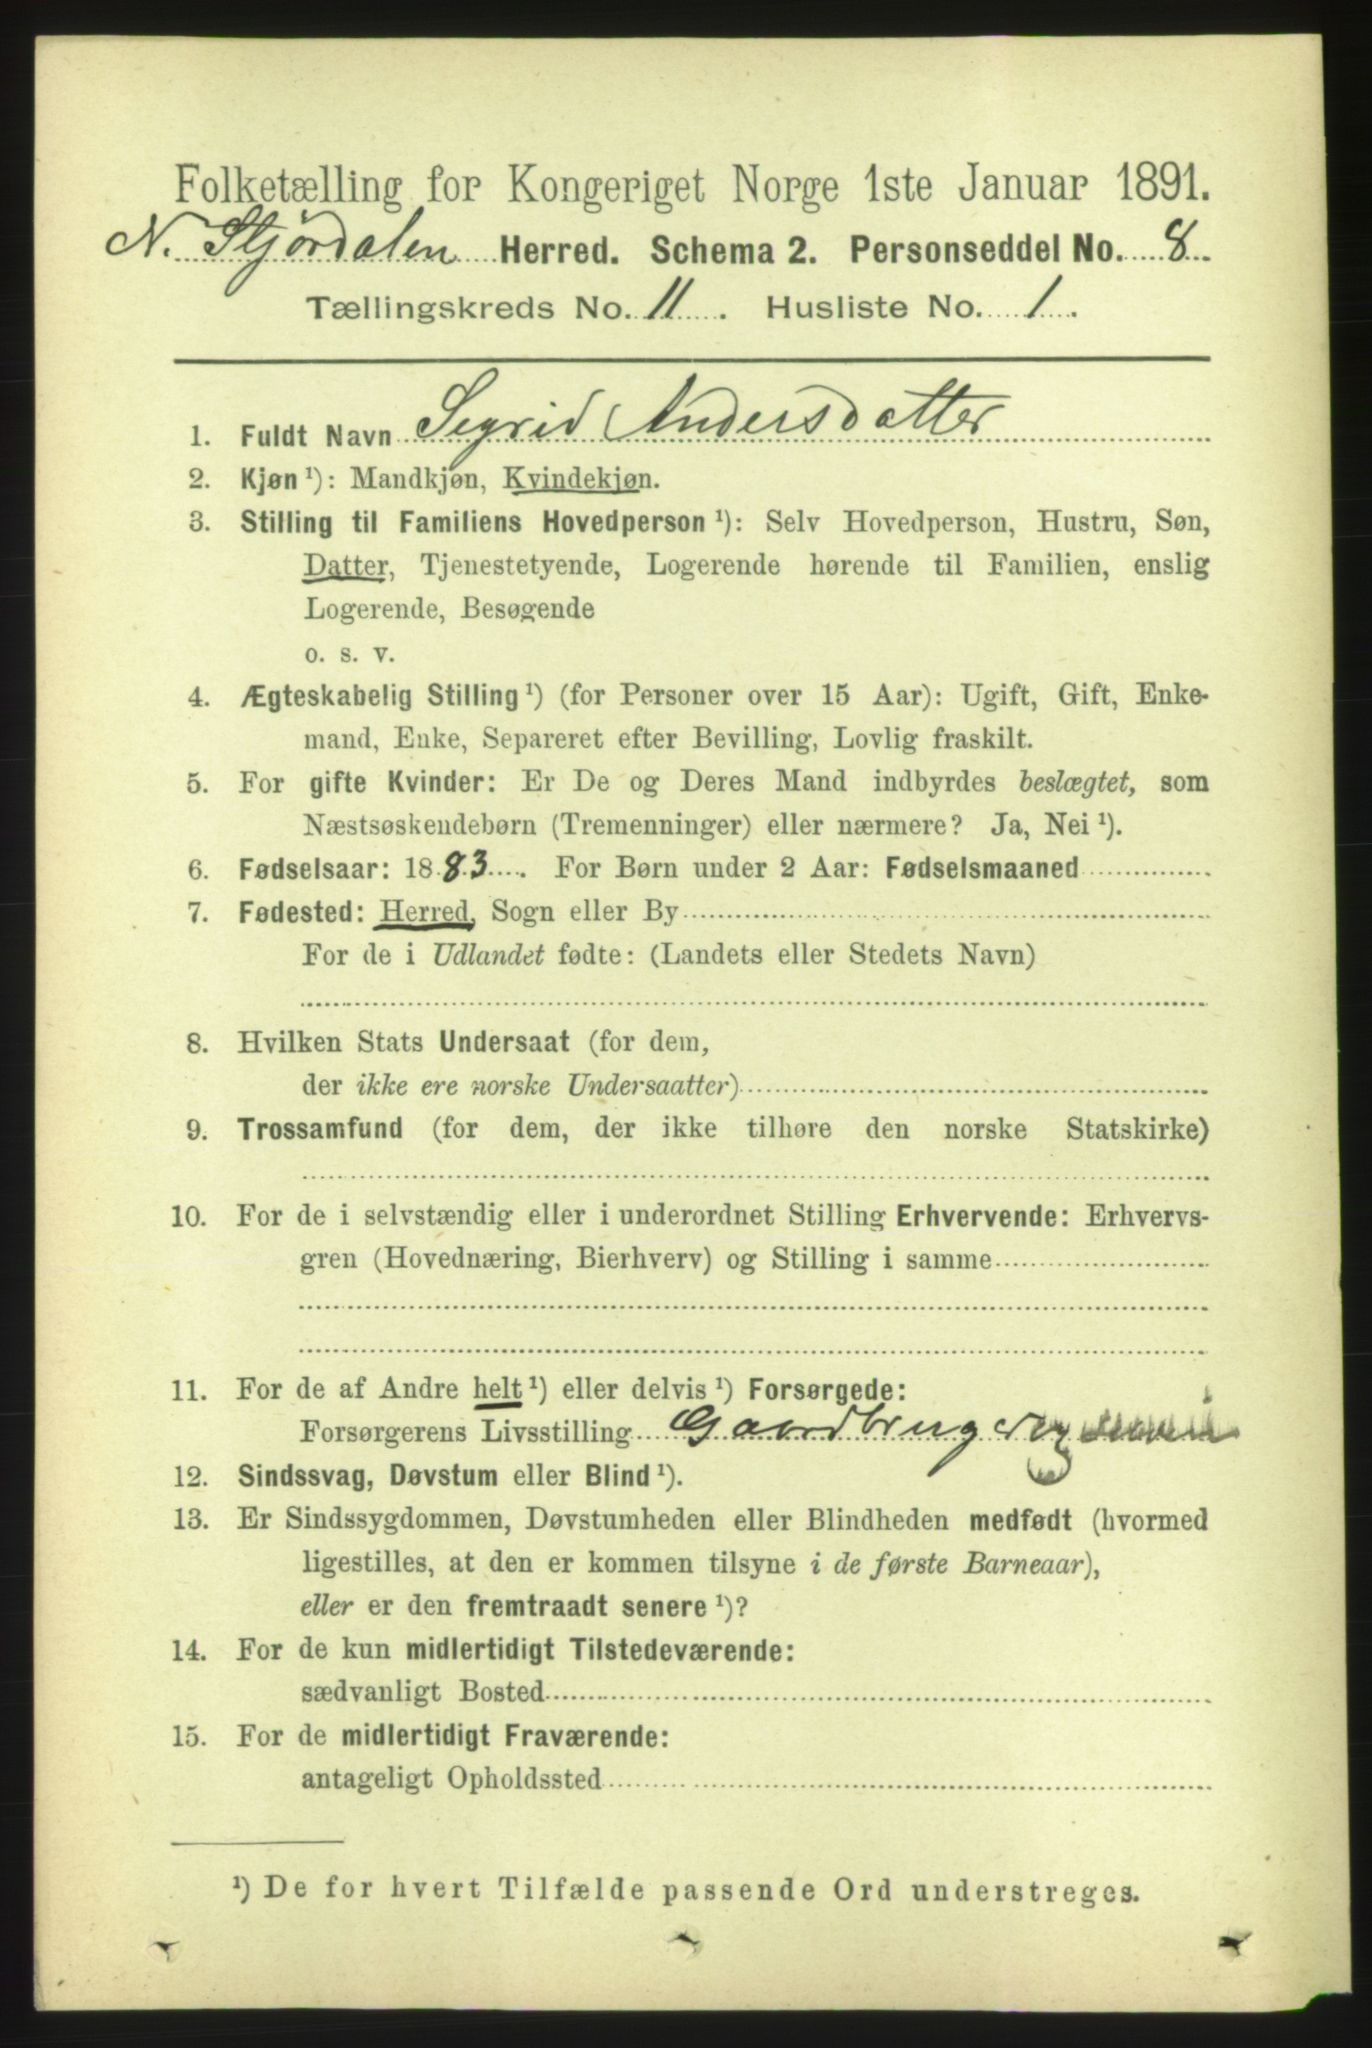 Folketælling for Kongeriget Norge 1ste Januar 1891.
N. Stjørdalen Herred. Schema 2. Personseddel No. 8
Tællingskreds No. 11. Husliste No. 1.
1. Fuldt Navn Segrid Andersdatter
2. Kjøn ¹): Mandkjøn, Kvindekjøn.
3. Stilling til Familiens Hovedperson ¹): Selv Hovedperson, Hustru, Søn,
Datter, Tjenestetyende, Logerende hørende til Familien, enslig
Logerende, Besøgende
o. s. v.
4. Ægteskabelig Stilling ¹) (for Personer over 15 Aar): Ugift, Gift, Enke-
mand, Enke, Separeret efter Bevilling, Lovlig fraskilt.
5. For gifte Kvinder: Er De og Deres Mand indbyrdes beslægtet, som
Næstsøskendebørn (Tremenninger) eller nærmere? Ja, Nei ¹).
6. Fødselsaar: 1883. For Børn under 2 Aar: Fødselsmaaned
7. Fødested: Herred, Sogn eller By
For de i Udlandet fødte: (Landets eller Stedets Navn)
8. Hvilken Stats Undersaat (for dem,
der ikke ere norske Undersaatter)
9. Trossamfund (for dem, der ikke tilhøre den norske Statskirke)
10. For de i selvstændig eller i underordnet Stilling Erhvervende: Erhvervs-
gren (Hovednæring, Bierhverv) og Stilling i samme
11. For de af Andre helt ¹) eller delvis ¹) Forsørgede:
Forsørgerens Livsstilling Gaardbruger
12. Sindssvag, Døvstum eller Blind ¹).
13. Er Sindssygdommen, Døvstumheden eller Blindheden medfødt (hvormed
ligestilles, at den er kommen tilsyne i de første Barneaar),
eller er den fremtraadt senere ¹)?
14. For de kun midlertidigt Tilstedeværende:
sædvanligt Bosted
15. For de midlertidigt Fraværende:
antageligt Opholdssted
¹) De for hvert Tilfælde passende Ord understreges.